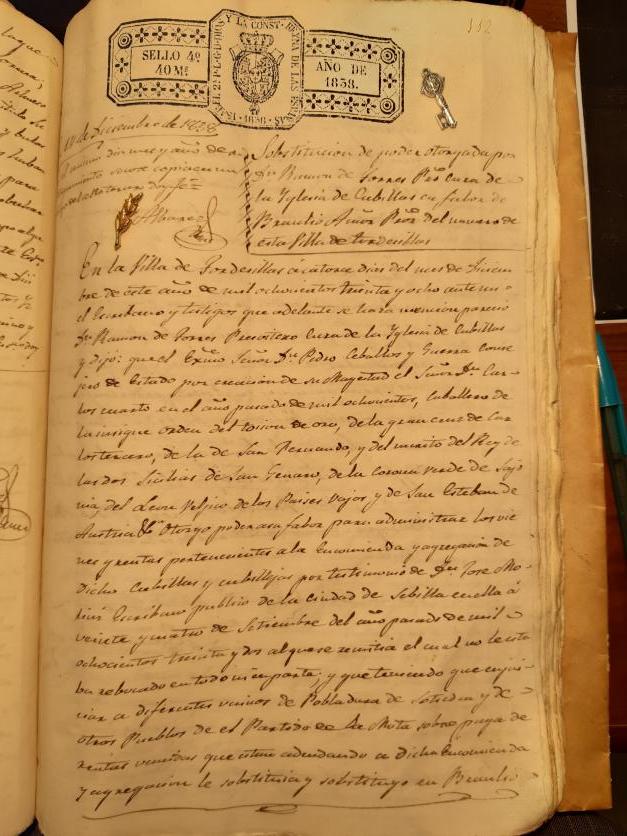 112
ISAB. 2ª P. L. G. D. DIOS Y LA CONST. REYNA DE LAS ESPAÑAS. 1838
SELLO 4º
40 Ms
AÑO DE
1838.
de Diciembre de 1838
dia mes y año de su
Alvarez
Sobstitucion de poder otorgada por
Dn Ramon de Torres Pro Cura de
la Yglesia de Cubillas en fabor de
Braulio Pror del numero de
esta Villa de tordesillas
En la Villa de Tordesillas á catorce dias del mes de Diciem
bre de este año de mil ochocientos treinta y ocho ante mi
el Escribano y testigos que adelante se hara mencion parecio
Dn Ramon de Torres Presvitero Cura de la Yglesia de Cubillas
y dijo: que el Exmo Señor Dn Pedro Ceballos y Guerra Conse
jero de Estado por creacion de su Magestad el Señor Dn Car-
los cuarto en el año pasado de mil ochocientos, Caballero de
la insigne orden del toison de oro, de la gran cruz de Car
los tercero, de la de San Fernando, y del merito del Rey de
las dos Sicilias de San Genaro, de la Corona verde de Sajo
nia, del Leon Veljico de los Paises vajos y de San Esteban de
Austria Otorgo poder a su fabor para administrar los vie
nes y rentas pertenecientes a la Encomienda y agregacion de
Dicho Cubillas y cubillejas por testimonio de Dn Jose Mo-
Escribano publico de la ciudad de Sebilla en ella á
veinte y cuatro de Setiembre del año pasado de mil
ochocientos treinta y dos al que se remitia el cual no le esta
ba rebocado en todo ni en parte; y que teniendo que enjui-
ciar a diferentes vecinos de Pobladura de Sotiedra y de
otros Pueblos de el Partido de la Mota sobre paga de
rentas vencidas que estan adeudando a dicha Encomienda
y agregacion le sobstituia y sobstituyo en Braulio